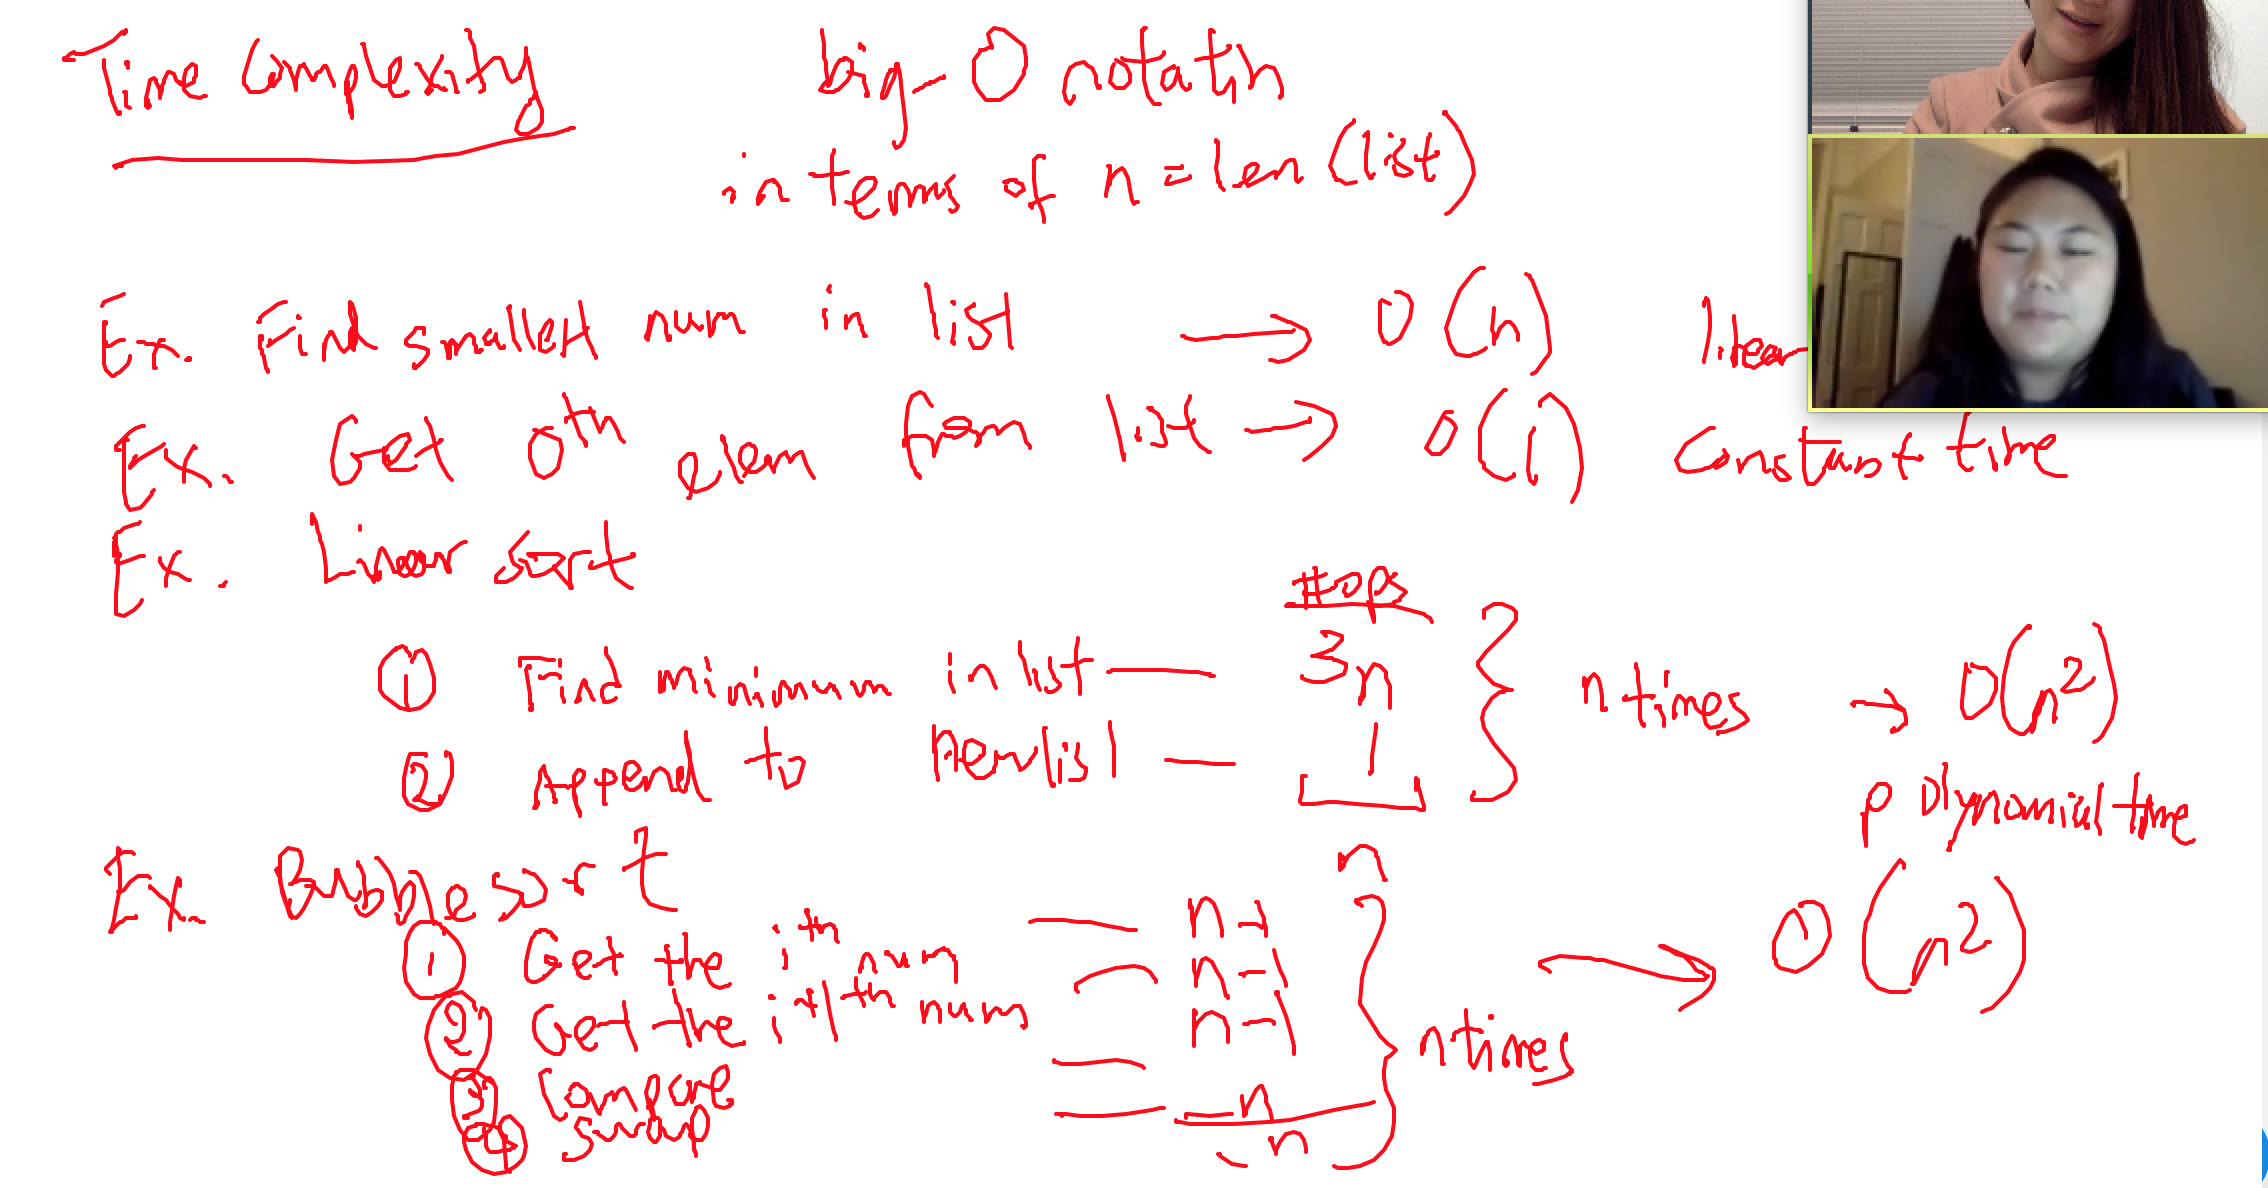 Time Complexity
big-O notatin
in terms of n = len (list)
Ex. Find smallest num in list → O(n)
Ex. Get 0th elem from list → O(1) Constant time
Ex. Linear sort
#ops
① Find minimum in list — 3n
n times → O(n²)
② Append to newlist — 1
polynomial time
n
Ex. Bubble sort
① Get the ith num — n-1
② Get the i+1th num — n-1
n-1
n times → O(n²)
③ Compare
④ swap — n
n